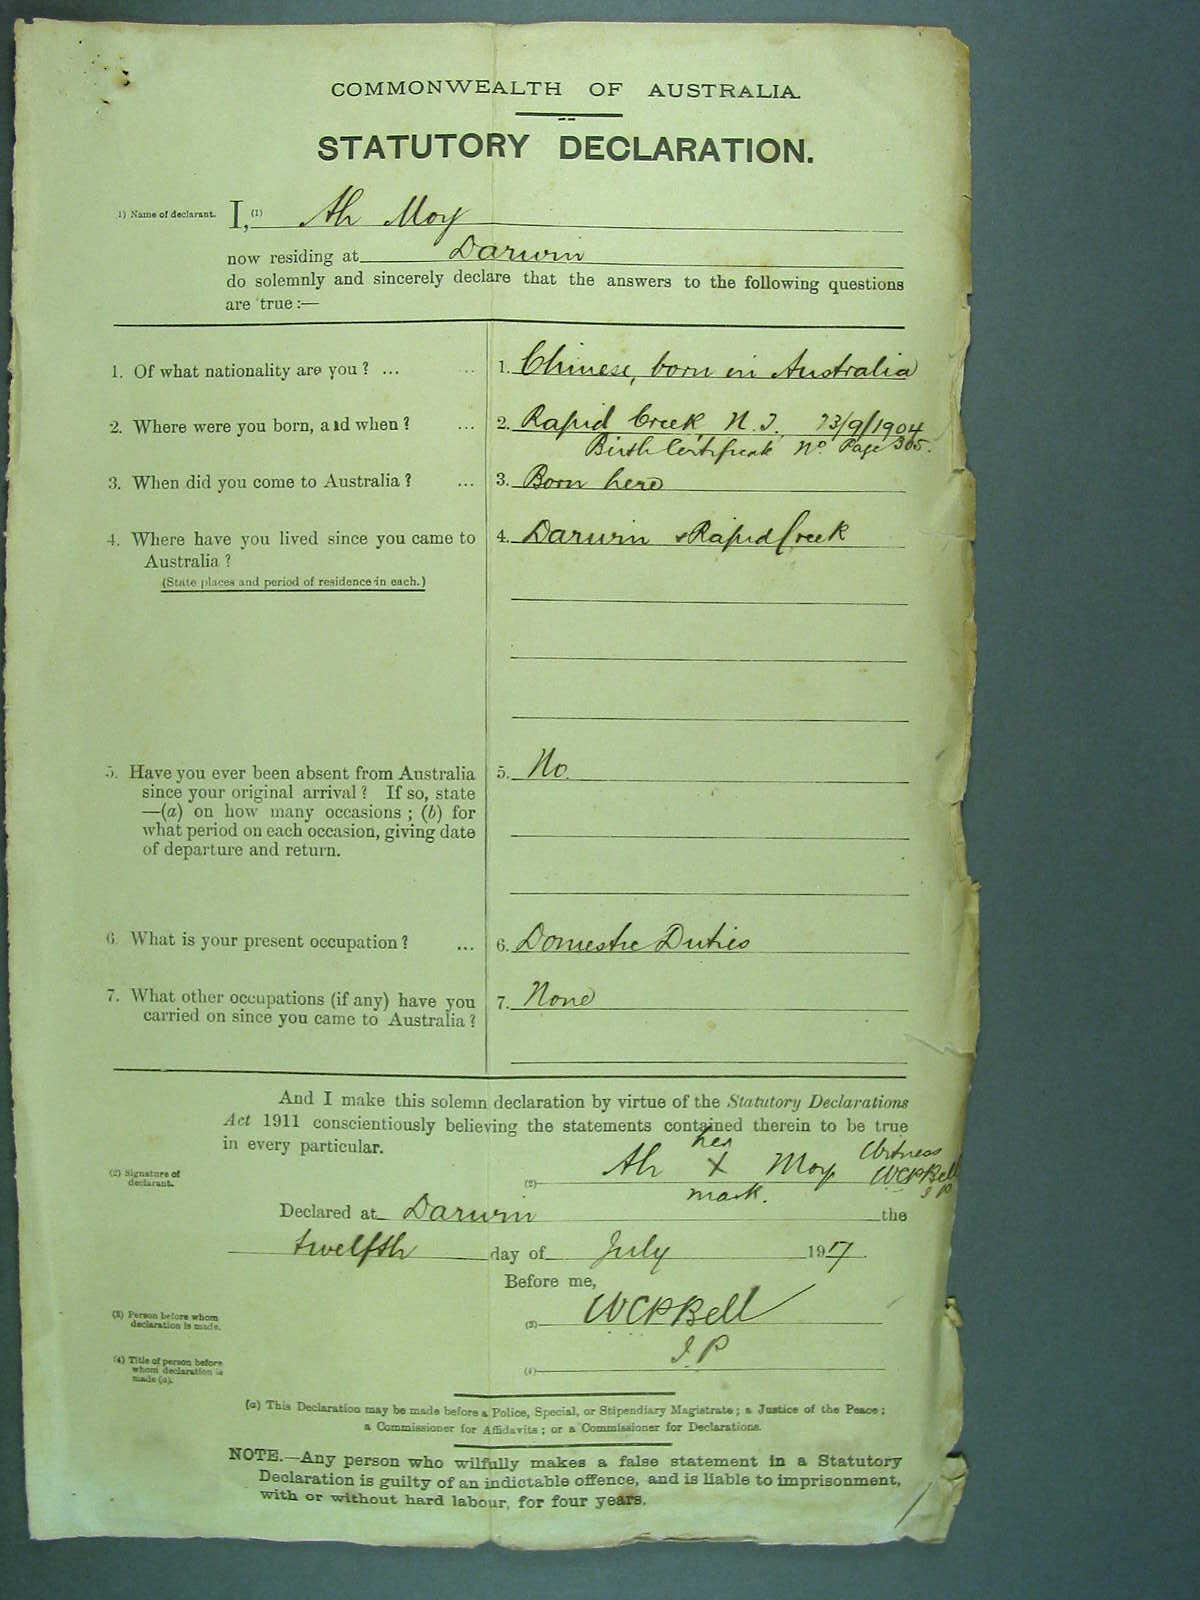 COMMONWEALTH OF AUSTRALIA.
STATUTORY DECLARATION.
1) Name of declarant. I, (1) Ah Moy
now residing at Darwin
do solemnly and sincerely declare that the answers to the following questions
are true :—
1. Of what nationality are you ? ... ... 1. Chinese, born in Australia
2. Where were you born, and when ? ... 2. Rapid Creek N.T. 23/9/1904
Birth Certificate No. Page 305.
3. When did you come to Australia ? ... 3. Born here
4. Where have you lived since you came to 4. Darwin & Rapid Creek
Australia ?
(State places and period of residence in each.)
5. Have you ever been absent from Australia 5. No.
since your original arrival ? If so, state
—(a) on how many occasions ; (b) for
what period on each occasion, giving date
of departure and return.
6. What is your present occupation ? ... 6. Domestic Duties
7. What other occupations (if any) have you 7. None
carried on since you came to Australia ?
And I make this solemn declaration by virtue of the Statutory Declarations
Act 1911 conscientiously believing the statements contained therein to be true
in every particular.
her Witness
(2) Signature of declarant. (2) Ah X Moy WCPBell
mark. J P
Declared at Darwin the
twelfth day of July 1917.
Before me,
(3) Person before whom declaration is made. (3) WCPBell
(4) Title of person before whom declaration is made (a). (4) J. P
(a) This Declaration may be made before a Police, Special, or Stipendiary Magistrate ; a Justice of the Peace ;
a Commissioner for Affidavits ; or a Commissioner for Declarations.
NOTE.—Any person who wilfully makes a false statement in a Statutory
Declaration is guilty of an indictable offence, and is liable to imprisonment,
with or without hard labour, for four years.